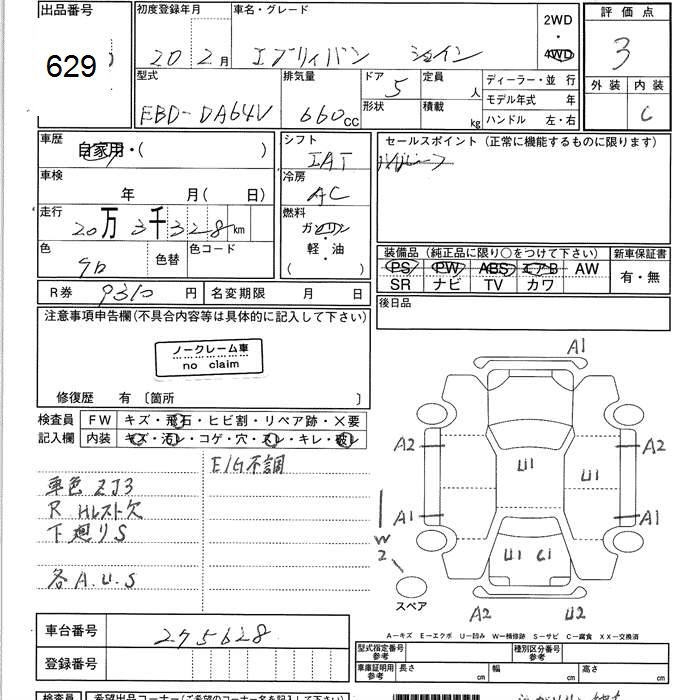 出品番号
629
初度登録年月
20 2月
車名・グレード
エブリィバン ジョイン
2WD
・
4WD
評価点
3
外装 内装
C
型式
EBD-DA64V
排気量
660cc
ドア 5
形状
定員 人
積載 kg
ディーラー・並 行
モデル年式 年
ハンドル 左・右
車歴
自家用・( )
車検
年 月( 日)
走行
20万3千328km
色
色替
色コード
シフト
IAT
冷房
AC
燃料
ガソリン
・
軽・油
( )
セールスポイント (正常に機能するものに限ります)
装備品 (純正品に限り○をつけて下さい)
PS PW ABS エアB AW
SR ナビ TV カワ
新車保証書
有・無
R券 9310円
名変期限 月 日
後日品
注意事項申告欄(不具合内容等は具体的に記入して下さい)
ノークレーム車
no claim
修復歴 有 〔箇所 〕
検査員
記入欄
FW キズ・飛石・ヒビ割・リペア跡・×要
内装 キズ・汚レ・コゲ・穴・スレ・キレ・破レ
E/G不調
車色 ZJ3
R Hレスト欠
下廻りS
各A.U.S
A1
A2
A2
U1
U1
A1
A1
W
2
U1
C1
スペア
A2
U2
A-キズ E-エクボ U-凹み W-補修跡 S-サビ C-腐食 XX-交換済
車台番号 275628
登録番号
型式指定番号
参考
種別区分番号
参考
車庫証明用
参考
長さ cm
幅 cm
高さ cm
検査員
希望出品コーナー(ご希望のコーナー名を記入して下さい)